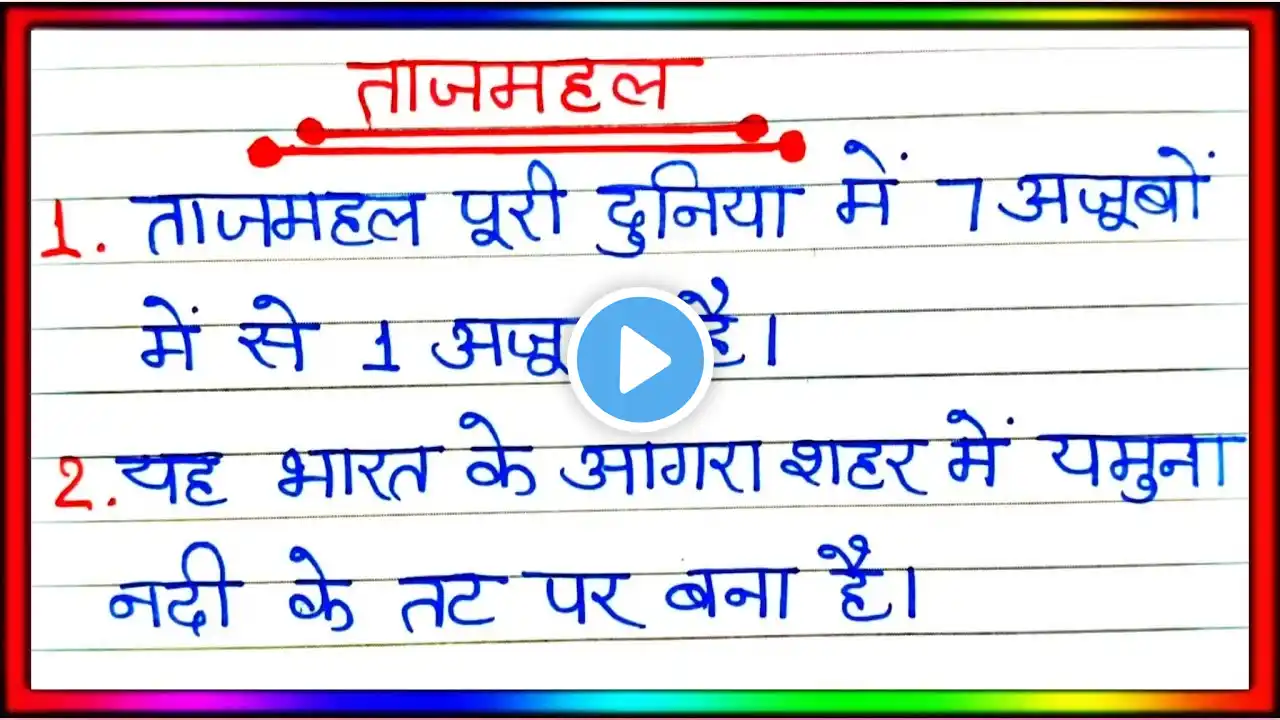 ताजमहल
1. ताजमहल पूरी दुनिया में 7 अजूबों
में से 1 है।
2. यह भारत के आगरा शहर में यमुना
नदी के तट पर बना है।